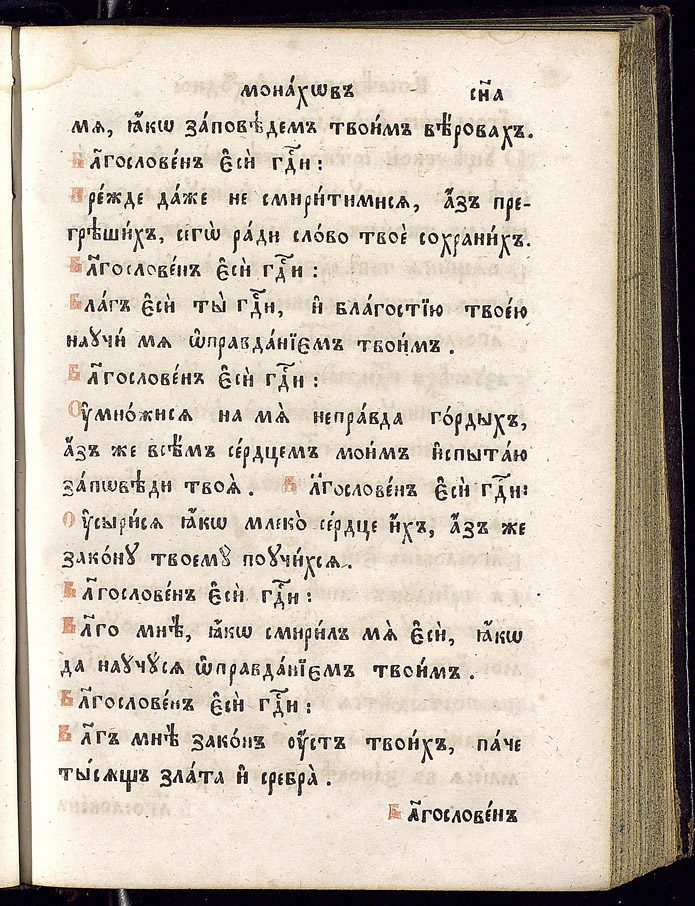 мона́хѡвъ сн҃а
мѧ, ꙗ҆́кѡ за́повѣдемъ твои́мъ вѣ́ровахъ.
Бл҃гослове́нъ є҆сѝ гдⷭ҇и:
Пре́жде да́же не смири́тимисѧ, а҆́зъ пре-
грѣши́хъ, сегѡ̀ ра́ди сло́во твоѐ сохрани́хъ.
Бл҃гослове́нъ є҆сѝ гдⷭ҇и:
Бла́гъ є҆сѝ ты̀ гдⷭ҇и, и҆ бла́гостїю твое́ю
наꙋчи́ мѧ ѡ҆правда́нїємъ твои́мъ.
Бл҃гослове́нъ є҆сѝ гдⷭ҇и:
Оу҆мно́жисѧ на мѧ̀ непра́вда го́рдыхъ,
а҆́зъ же всѣ́мъ се́рдцемъ мои́мъ и҆спыта́ю
за́пѡвѣди твоѧ̀. Бл҃гослове́нъ є҆сѝ гдⷭ҇и:
Оу҆сыри́сѧ ꙗ҆́кѡ млеко̀ се́рдце и҆́хъ, а҆́зъ же
зако́нꙋ твоемꙋ̀ поꙋчи́хсѧ.
Бл҃гослове́нъ є҆сѝ гдⷭ҇и:
Бл҃го мнѣ̀, ꙗ҆́кѡ смири́лъ мѧ̀ є҆сѝ, ꙗ҆́кѡ
да наꙋчꙋ́сѧ ѡ҆правда́нїємъ твои́мъ.
Бл҃гослове́нъ є҆сѝ гдⷭ҇и:
Бл҃гъ мнѣ̀ зако́нъ оу҆́стъ твои́хъ, па́че
ты́сѧщъ зла́та и҆ сребра̀.
Бл҃гослове́нъ